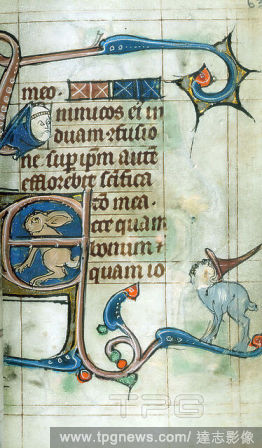 meo.
nimicos ei in
duam. & filio
ne sup ipm aute
efflorebit scifica
ecce quam
bonum &
quam io
TPG
www.tpgnews.com/達志影像